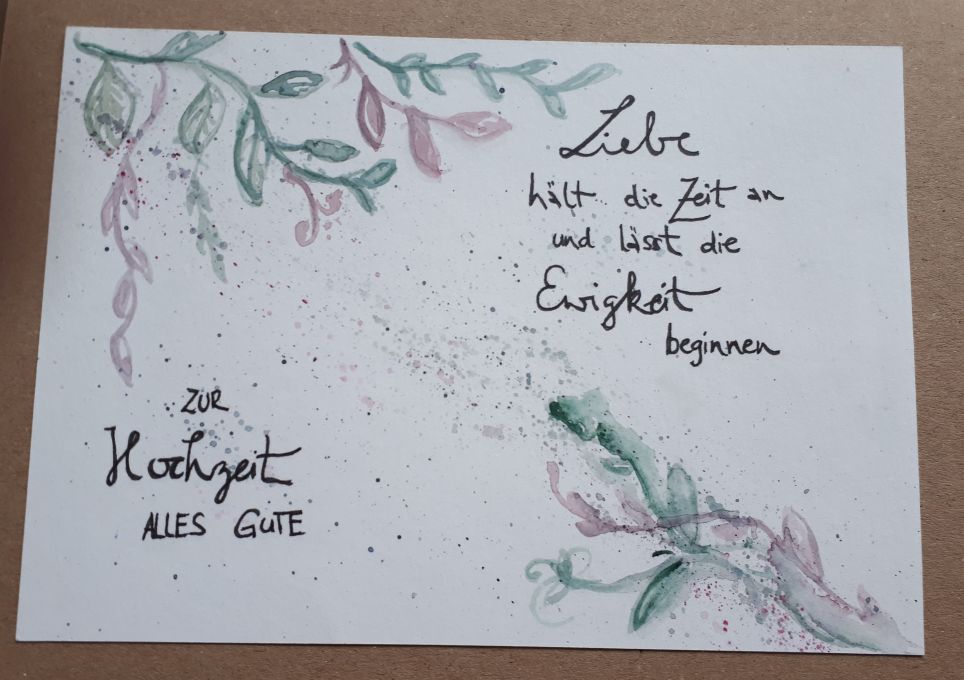 Liebe
hält die Zeit an
und lässt die
Ewigkeit
beginnen
ZUR
Hochzeit
ALLES GUTE